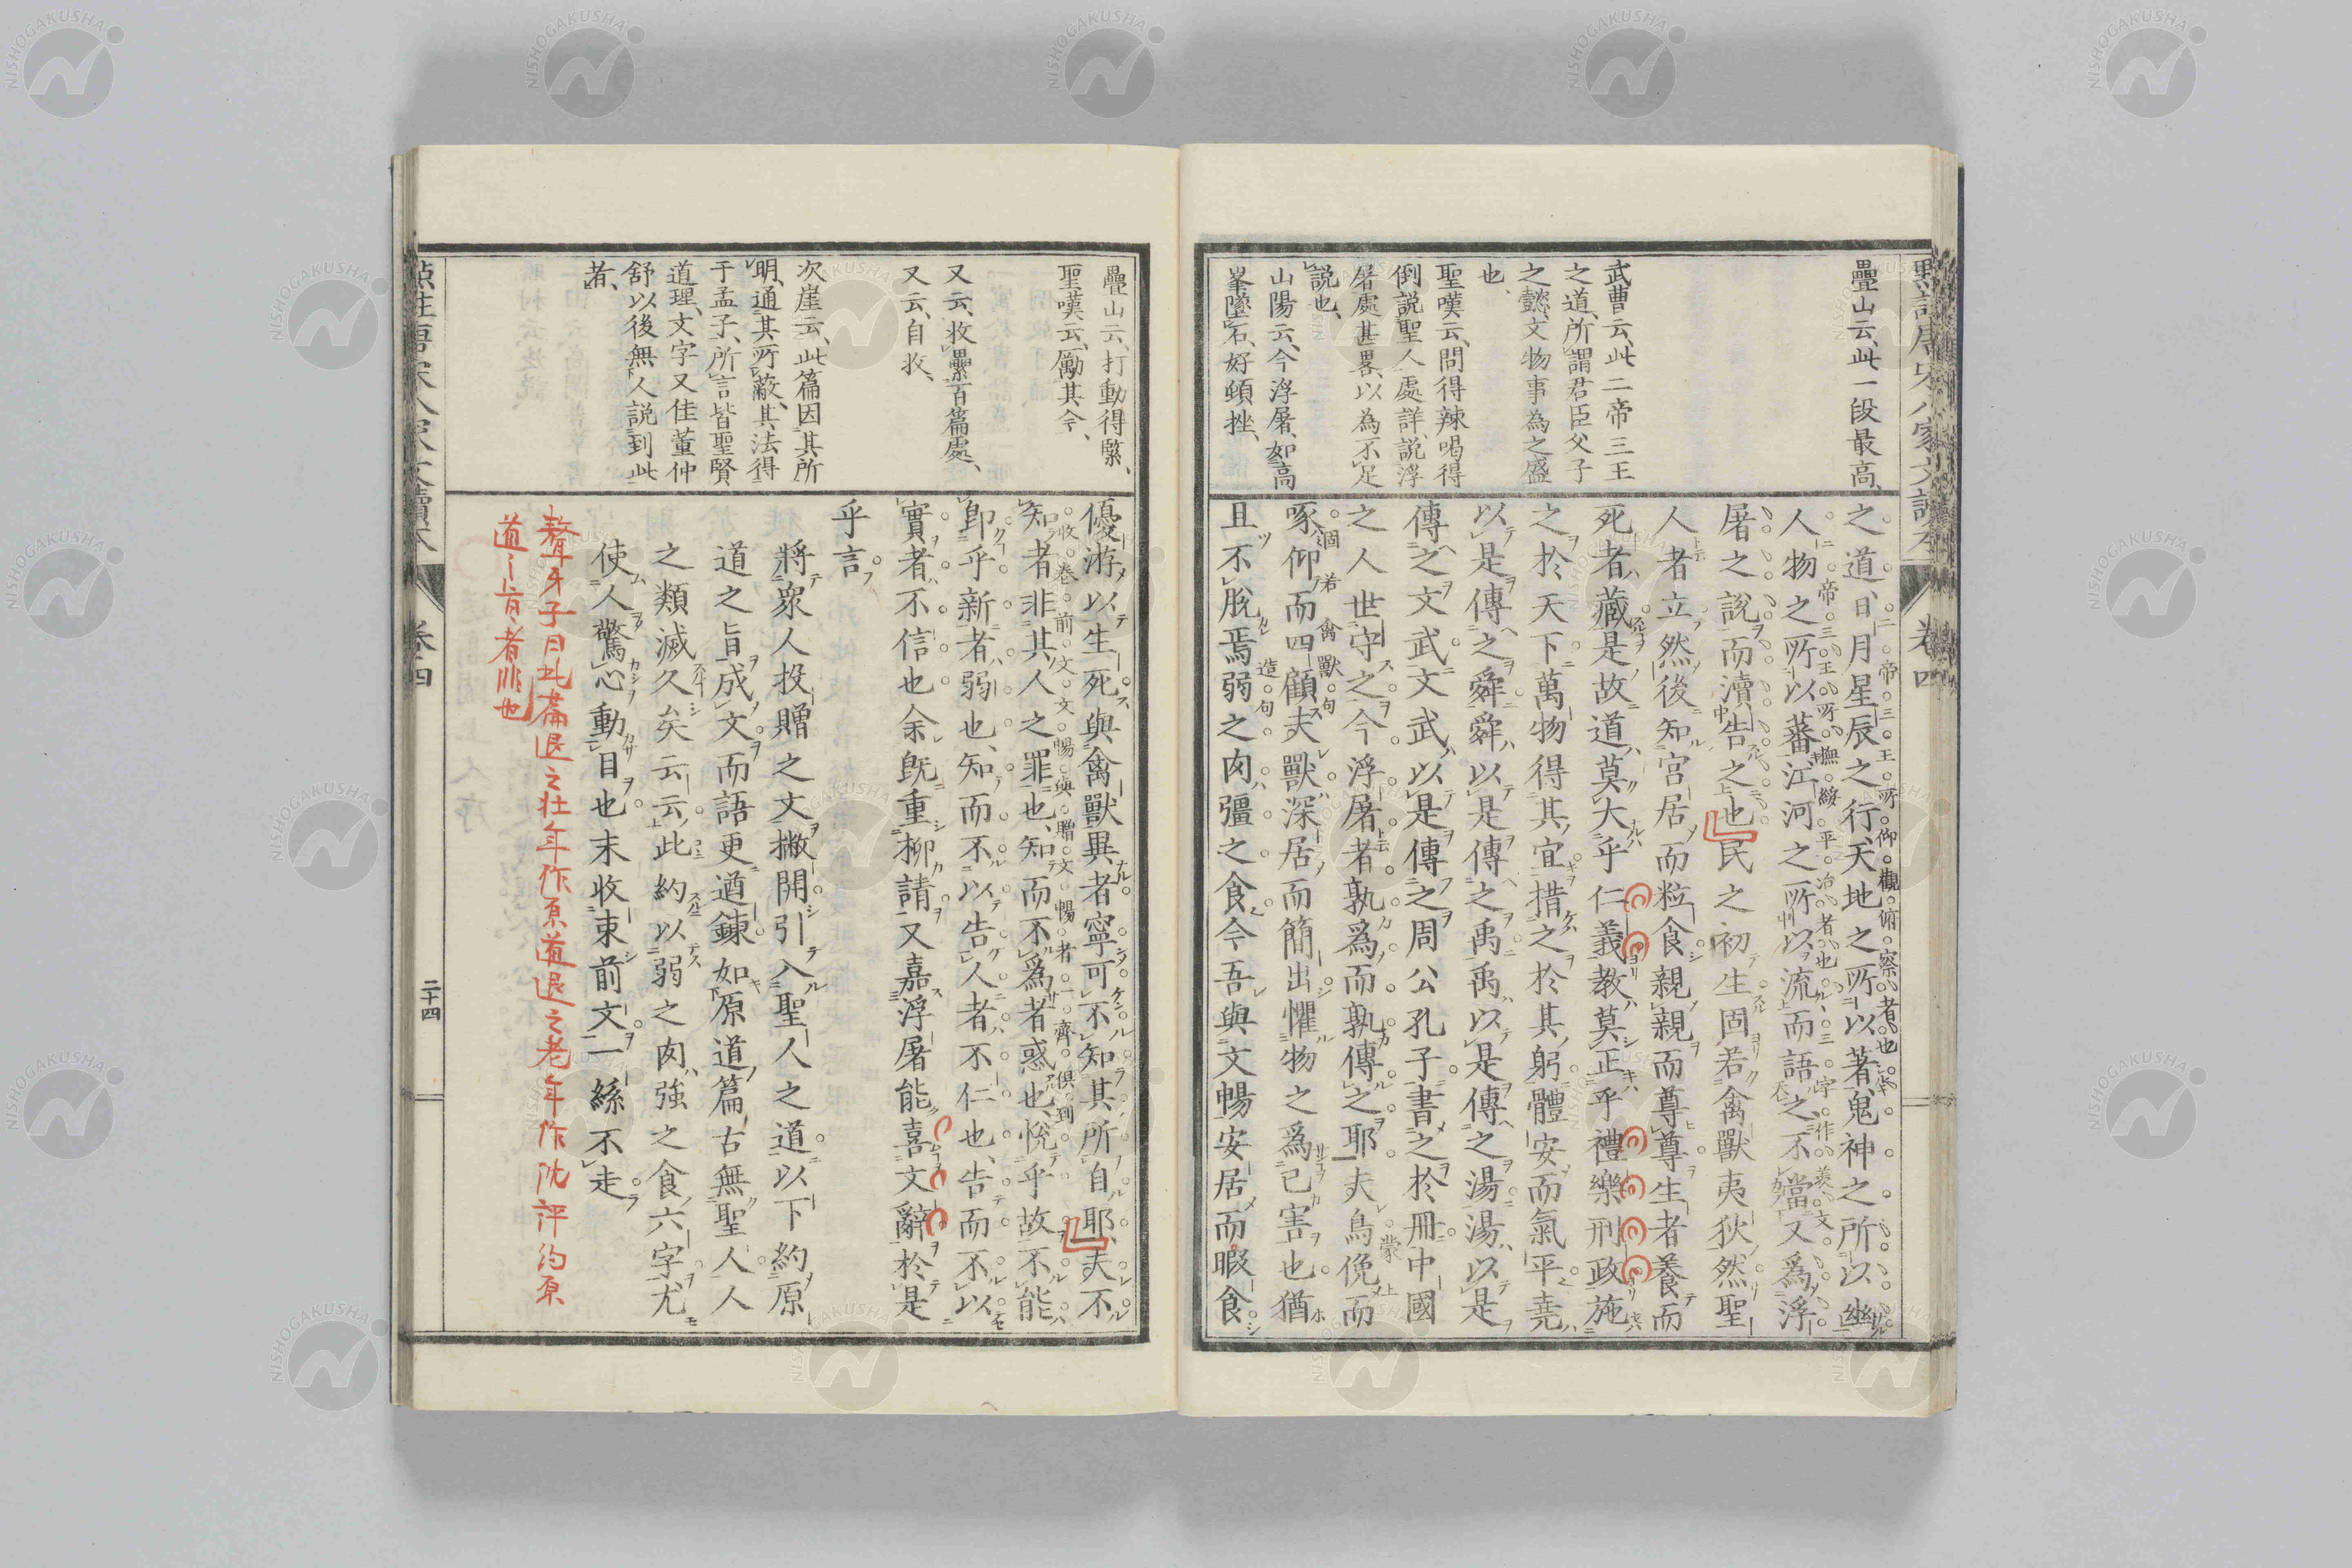 疊山云、此一段最高、
武曹云、此二帝三王
之道、所謂君臣父子
之懿、文物事為之盛
也、
聖嘆云、問得辣喝得
倒説聖人處詳、説浮
屠處甚畧、以為不足
説也、
山陽云、今浮屠、如高
峯墜石、好頓挫、
之道、日月星辰之行、天地之所以著、鬼神之所以幽
人物之所以蕃、江河之所以流而語之、不當又爲浮
屠之說而瀆告之也民之初生固若禽獸夷狄然聖
人者立然後知宮居而粒食親親而尊尊生者養而
死者藏是故道莫大乎仁義教莫正乎禮樂刑政施
之於天下萬物得其宜措之於其躬體安而氣平堯
以是傳之舜舜以是傳之禹禹以是傳之湯湯以是
傳之文武文武以是傳之周公孔子書之於冊中國
之人世守之今浮屠者孰爲而孰傳之耶夫鳥俛而
啄仰而四顧夫獸深居而簡出懼物之爲己害也猶
且不脫焉弱之肉彊之食今吾與文暢安居而暇食
卷四
疊山云、打動得緊、
聖嘆云、勵其今、
又云、收疊百篇處、
又云、自收、
次崖云、此篇因其所
明、通其所蔽、其法得
于孟子、所言皆聖賢
道理、文字又佳董仲
舒以後無人説到此
者、
優游以生死與禽獸異者寧可不知其所自耶、夫不
知者非其人之罪也、知而不爲者惑也、悅乎故不能
卽乎新者弱也、知而不以告人者不仁也、告而不以
實者不信也余旣重柳請又嘉浮屠能喜文辭於是
乎言
將衆人投贈之文撇開引入聖人之道以下約原
道之旨成文而語更遒鍊如原道篇古無聖人人
之類滅久矣云云此約以弱之肉強之食六字尤
使人驚心動目也末收束前文一絲不走
聱牙子曰此篇退之壯年作原道退之老年作沈評約原
道之旨者非也
卷四
二十四